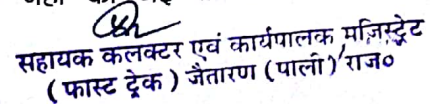 सहायक कलक्टर एवं कार्यपालक मजिस्ट्रेट
(फास्ट ट्रेक) जैतारण (पाली) राज०